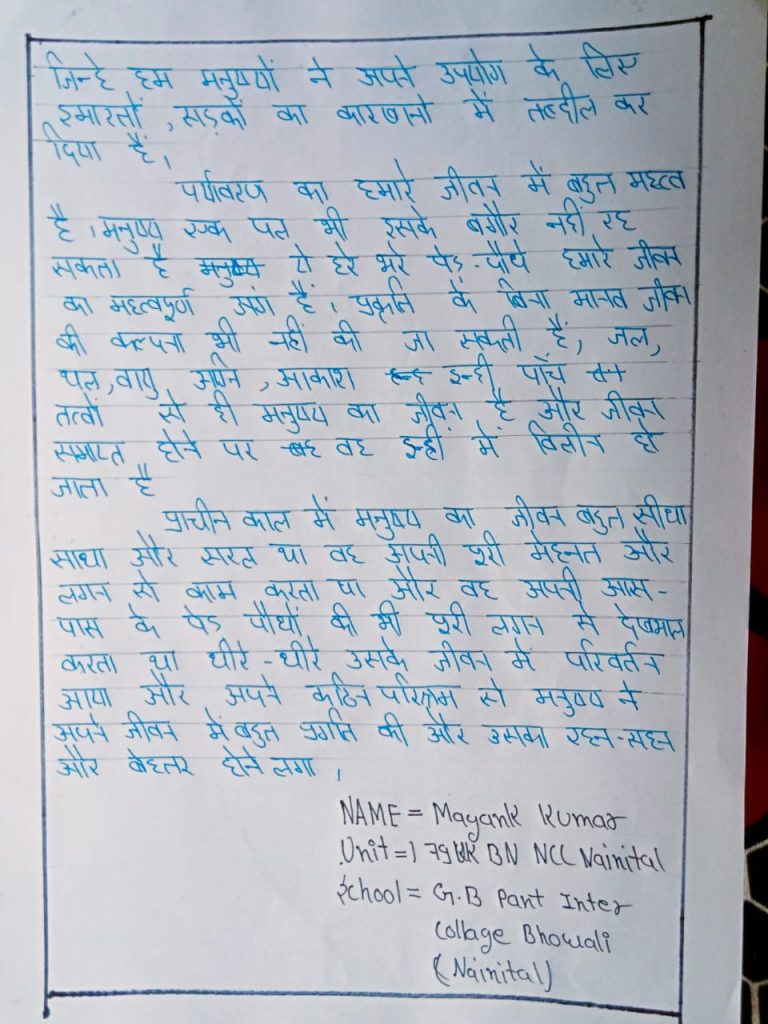 जिन्हे हम मनुष्यों ने अपने उपयोग के लिए
इमारतों, सड़कों का कारखानो में तब्दील कर
दिया हैं,
पर्यावरण का हमारे जीवन में बहुत महत्व
है। मनुष्य एक पल भी इसके बगैर नहीं रह
सकता है ये हरे भरे पेड़-पौधे हमारे जीवन
का महत्वपूर्ण अंग हैं। प्रकृति के बिना मानव जीवन
की कल्पना भी नहीं की जा सकती हैं, जल,
थल, वायु, अग्नि, आकाश इन्ही पाँच
तत्वों से ही मनुष्य का जीवन है और जीवन
समाप्त होने पर वह इन्हीं में विलीन हो
जाता है
प्राचीन काल में मनुष्य का जीवन बहुत सीधा
साधा और सरल था वह अपनी पूरी मेहनत और
लगन से काम करता था और वह अपनी आस-
पास के पेड़ पौधों की भी पूरी लगन से देखभाल
करता था धीरे-धीरे उसके जीवन में परिवर्तन
आया और अपने कठिन परिश्रम से मनुष्य ने
अपने जीवन में बहुत प्रगति की और उसका रहन-सहन
और बेहतर होने लगा,
NAME = Mayank Kumar
Unit = 1 79 UK BN NCC Nainital
School = G.B Pant Inter
Collage Bhowali
(Nainital)